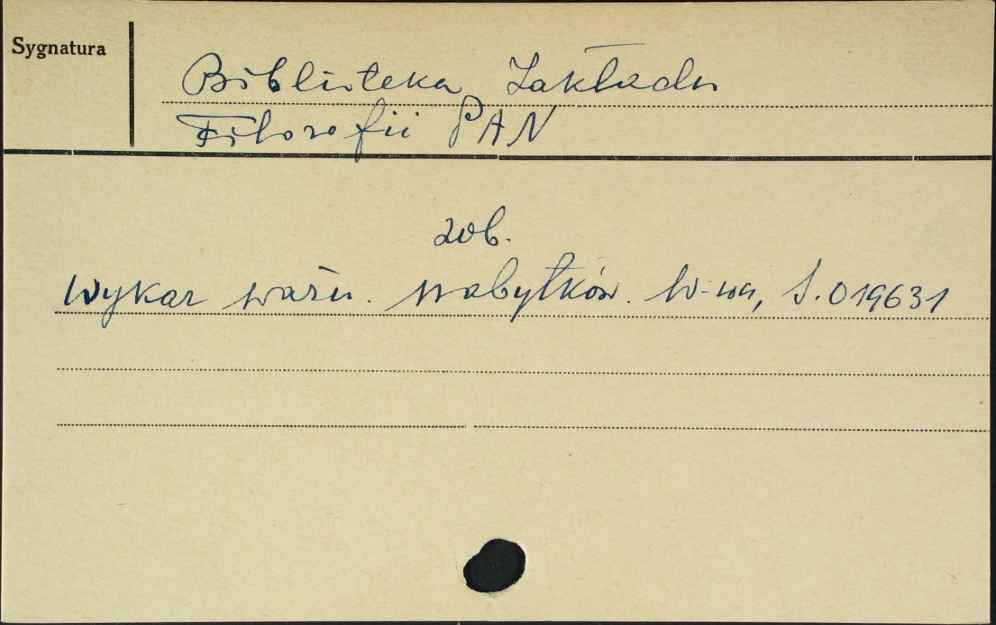 Sygnatura
Biblioteka Zakładu
Filozofii PAN
zob.
Wykaz ważn. nabytków. W-wa, S.019631